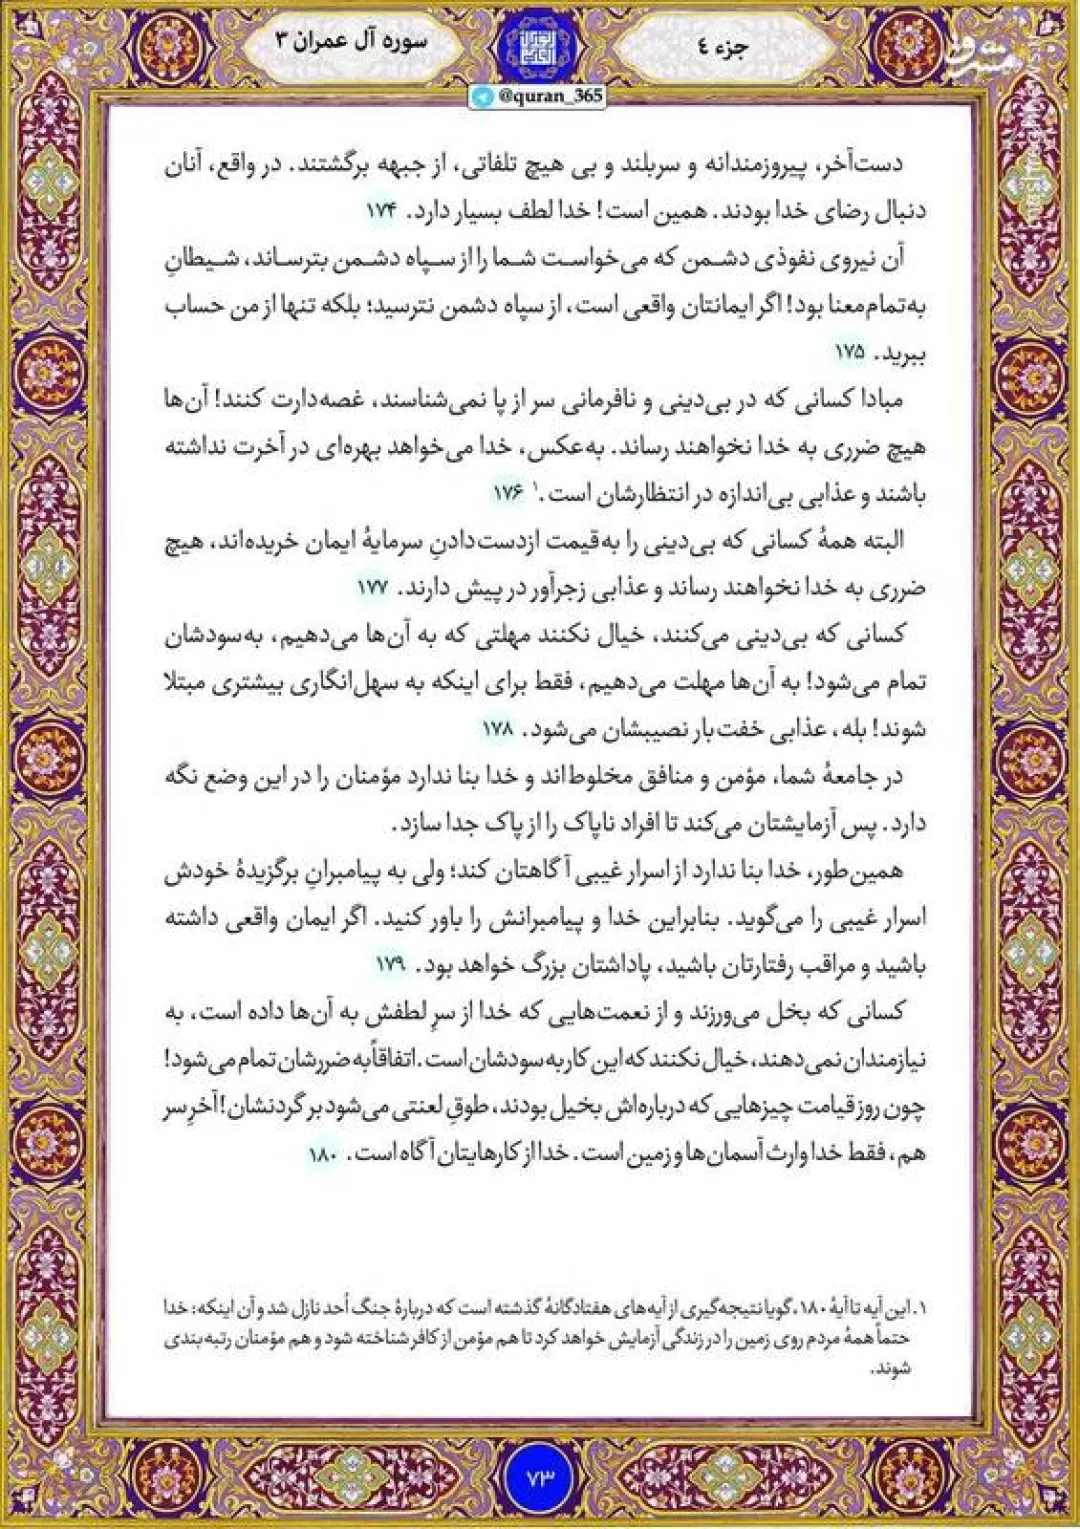 جزء ٤
سوره آل عمران ۳
@quran_365
دست‌آخر، پیروزمندانه و سربلند و بی هیچ تلفاتی، از جبهه برگشتند. در واقع، آنان
دنبال رضای خدا بودند. همین است! خدا لطف بسیار دارد. ۱۷۴
آن نیروی نفوذی دشمن که می‌خواست شما را از سپاه دشمن بترساند، شیطانِ
به‌تمام‌معنا بود! اگر ایمانتان واقعی است، از سپاه دشمن نترسید؛ بلکه تنها از من حساب
ببرید. ۱۷۵
مبادا کسانی که در بی‌دینی و نافرمانی سر از پا نمی‌شناسند، غصه‌دارت کنند! آن‌ها
هیچ ضرری به خدا نخواهند رساند. به‌عکس، خدا می‌خواهد بهره‌ای در آخرت نداشته
باشند و عذابی بی‌اندازه در انتظارشان است.۱ ۱۷۶
البته همهٔ کسانی که بی‌دینی را به‌قیمت ازدست‌دادنِ سرمایهٔ ایمان خریده‌اند، هیچ
ضرری به خدا نخواهند رساند و عذابی زجرآور در پیش دارند. ۱۷۷
کسانی که بی‌دینی می‌کنند، خیال نکنند مهلتی که به آن‌ها می‌دهیم، به‌سودشان
تمام می‌شود! به آن‌ها مهلت می‌دهیم، فقط برای اینکه به سهل‌انگاری بیشتری مبتلا
شوند! بله، عذابی خفت‌بار نصیبشان می‌شود. ۱۷۸
در جامعهٔ شما، مؤمن و منافق مخلوط‌اند و خدا بنا ندارد مؤمنان را در این وضع نگه
دارد. پس آزمایشتان می‌کند تا افراد ناپاک را از پاک جدا سازد.
همین‌طور، خدا بنا ندارد از اسرار غیبی آگاهتان کند؛ ولی به پیامبرانِ برگزیدهٔ خودش
اسرار غیبی را می‌گوید. بنابراین خدا و پیامبرانش را باور کنید. اگر ایمان واقعی داشته
باشید و مراقب رفتارتان باشید، پاداشتان بزرگ خواهد بود. ۱۷۹
کسانی که بخل می‌ورزند و از نعمت‌هایی که خدا از سرِ لطفش به آن‌ها داده است، به
نیازمندان نمی‌دهند، خیال نکنند که این کار به سودشان است. اتفاقاً به ضررشان تمام می‌شود!
چون روز قیامت چیزهایی که درباره‌اش بخیل بودند، طوقِ لعنتی می‌شود بر گردنشان! آخرِ سر
هم، فقط خدا وارث آسمان‌ها و زمین است. خدا از کارهایتان آگاه است. ۱۸۰
۱. این آیه تا آیهٔ ۱۸۰، گویا نتیجه‌گیری از آیه‌های هفتادگانهٔ گذشته است که دربارهٔ جنگ اُحد نازل شد و آن اینکه: خدا
حتماً همهٔ مردم روی زمین را در زندگی آزمایش خواهد کرد تا هم مؤمن از کافر شناخته شود و هم مؤمنان رتبه‌بندی
شوند.
۷۳